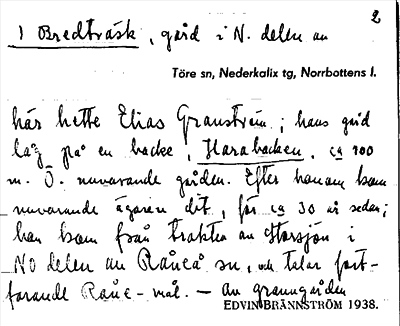 2
1 Bredträsk, gård i N. delen av
Töre sn, Nederkalix tg, Norrbottens l.
här hette Elias Granström; hans gård
låg på en backe, Harabacken, ca 100
m. Ö. nuvarande gården. Efter honom kom
nuvarande ägaren dit, för ca 30 år sedan;
han kom från trakten av Storsjön i
NO delen av Råneå sn, och talar fort-
farande Råne-mål. — av granngården
EDVIN BRÄNNSTRÖM 1938.